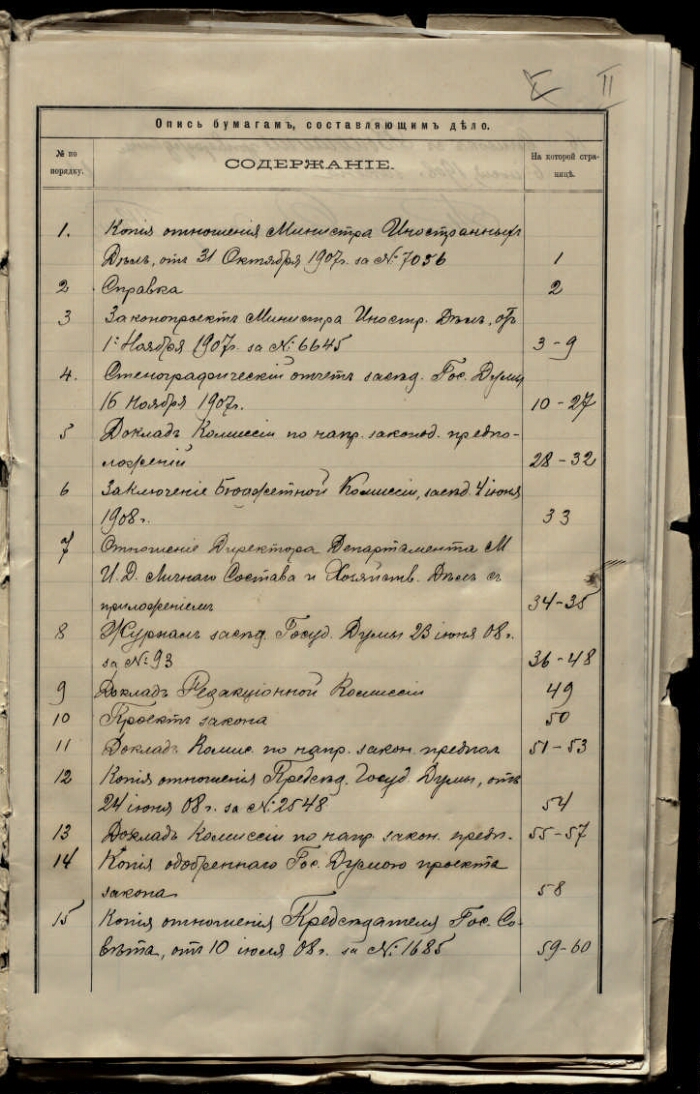 II
Опись бумагамъ, составляющимъ дѣло.
№ по порядку.
СОДЕРЖАНІЕ.
На которой стра-
ницѣ.
1. Копія отношенія Министра Иностранныхъ
Дѣлъ, отъ 31 Октября 1907г. за №: 7056 1
2 Справка 2
3 Законопроектъ Министра Иностр. Дѣлъ, отъ
1: Ноября 1907г. за №: 6645 3-9
4. Стенографическій отчетъ засѣд. Гос. Думы
16 Ноября 1907г. 10-27
5 Докладъ Комиссіи по напр. законод. предпо-
ложеній 28-32
6 Заключеніе Бюджетной Комиссіи, засѣд. 4 іюня
1908г. 33
7 Отношеніе Директора Департамента М
И. Д. Личнаго Состава и Хозяйств. Дѣлъ съ
приложеніемъ 34-35
8 Журналъ засѣд. Госуд. Думы 23 іюня 08г.
за №: 93 36-48
9 Докладъ Редакціонной Комиссіи 49
10 Проектъ закона 50
11 Докладъ Комис. по напр. закон. предпол 51-53
12 Копія отношенія Предсѣд. Госуд. Думы, отъ
24 іюня 08г. за №: 2548 54
13 Докладъ Комиссіи по напр. закон. предп. 55-57
14 Копія одобреннаго Гос. Думою проекта
закона 58
15 Копія отношенія Предсѣдателя Гос. Со-
вѣта, отъ 10 іюля 08г. за №: 1685 59-60